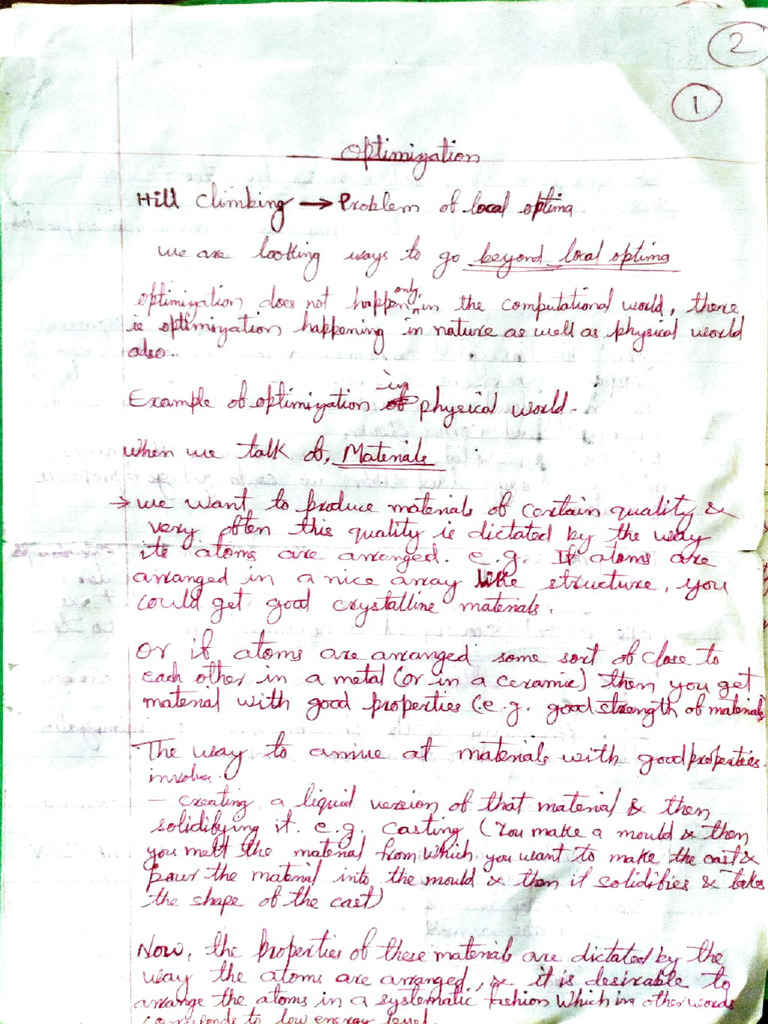 2
1
Optimization
Hill climbing → Problem of local optima
we are looking ways to go beyond local optima
only
optimization does not happen in the computational world, there
is optimization happening in nature as well as physical world
also.
in
Example of optimization of physical world.
when we talk of, Materials
→ we want to produce materials of certain quality &
very often this quality is dictated by the way
its atoms are arranged. e.g. If atoms are
arranged in a nice array like structure, you
could get good crystalline materials.
Or if atoms are arranged some sort of close to
each other in a metal (or in a ceramic) then you get
material with good properties (e.g. good strength of materials
The way to arrive at materials with good properties.
involves.
- creating a liquid version of that material & then
solidifying it. e.g. casting (You make a mould & then
you melt the material from which you want to make the cast &
pour the material into the mould & then it solidifies & takes
the shape of the cast)
Now, the properties of these materials are dictated by the
way the atoms are arranged, & it is desirable to
arrange the atoms in a systematic fashion which in other words
corresponds to low energy level.